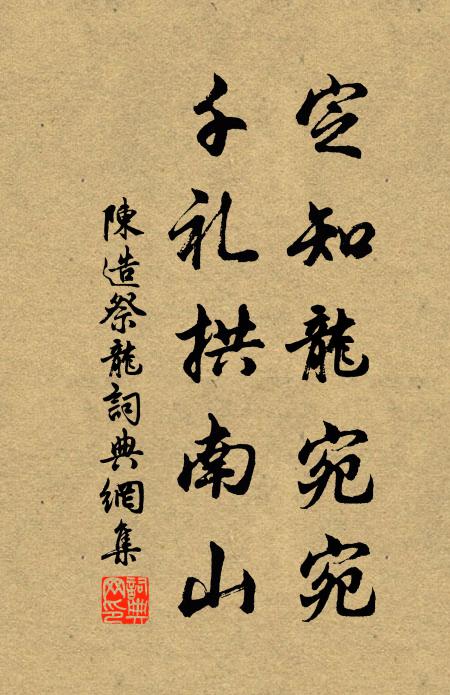 定知龍宛宛
千礼拱南山
陳造祭龍詞典網集
詞典網印